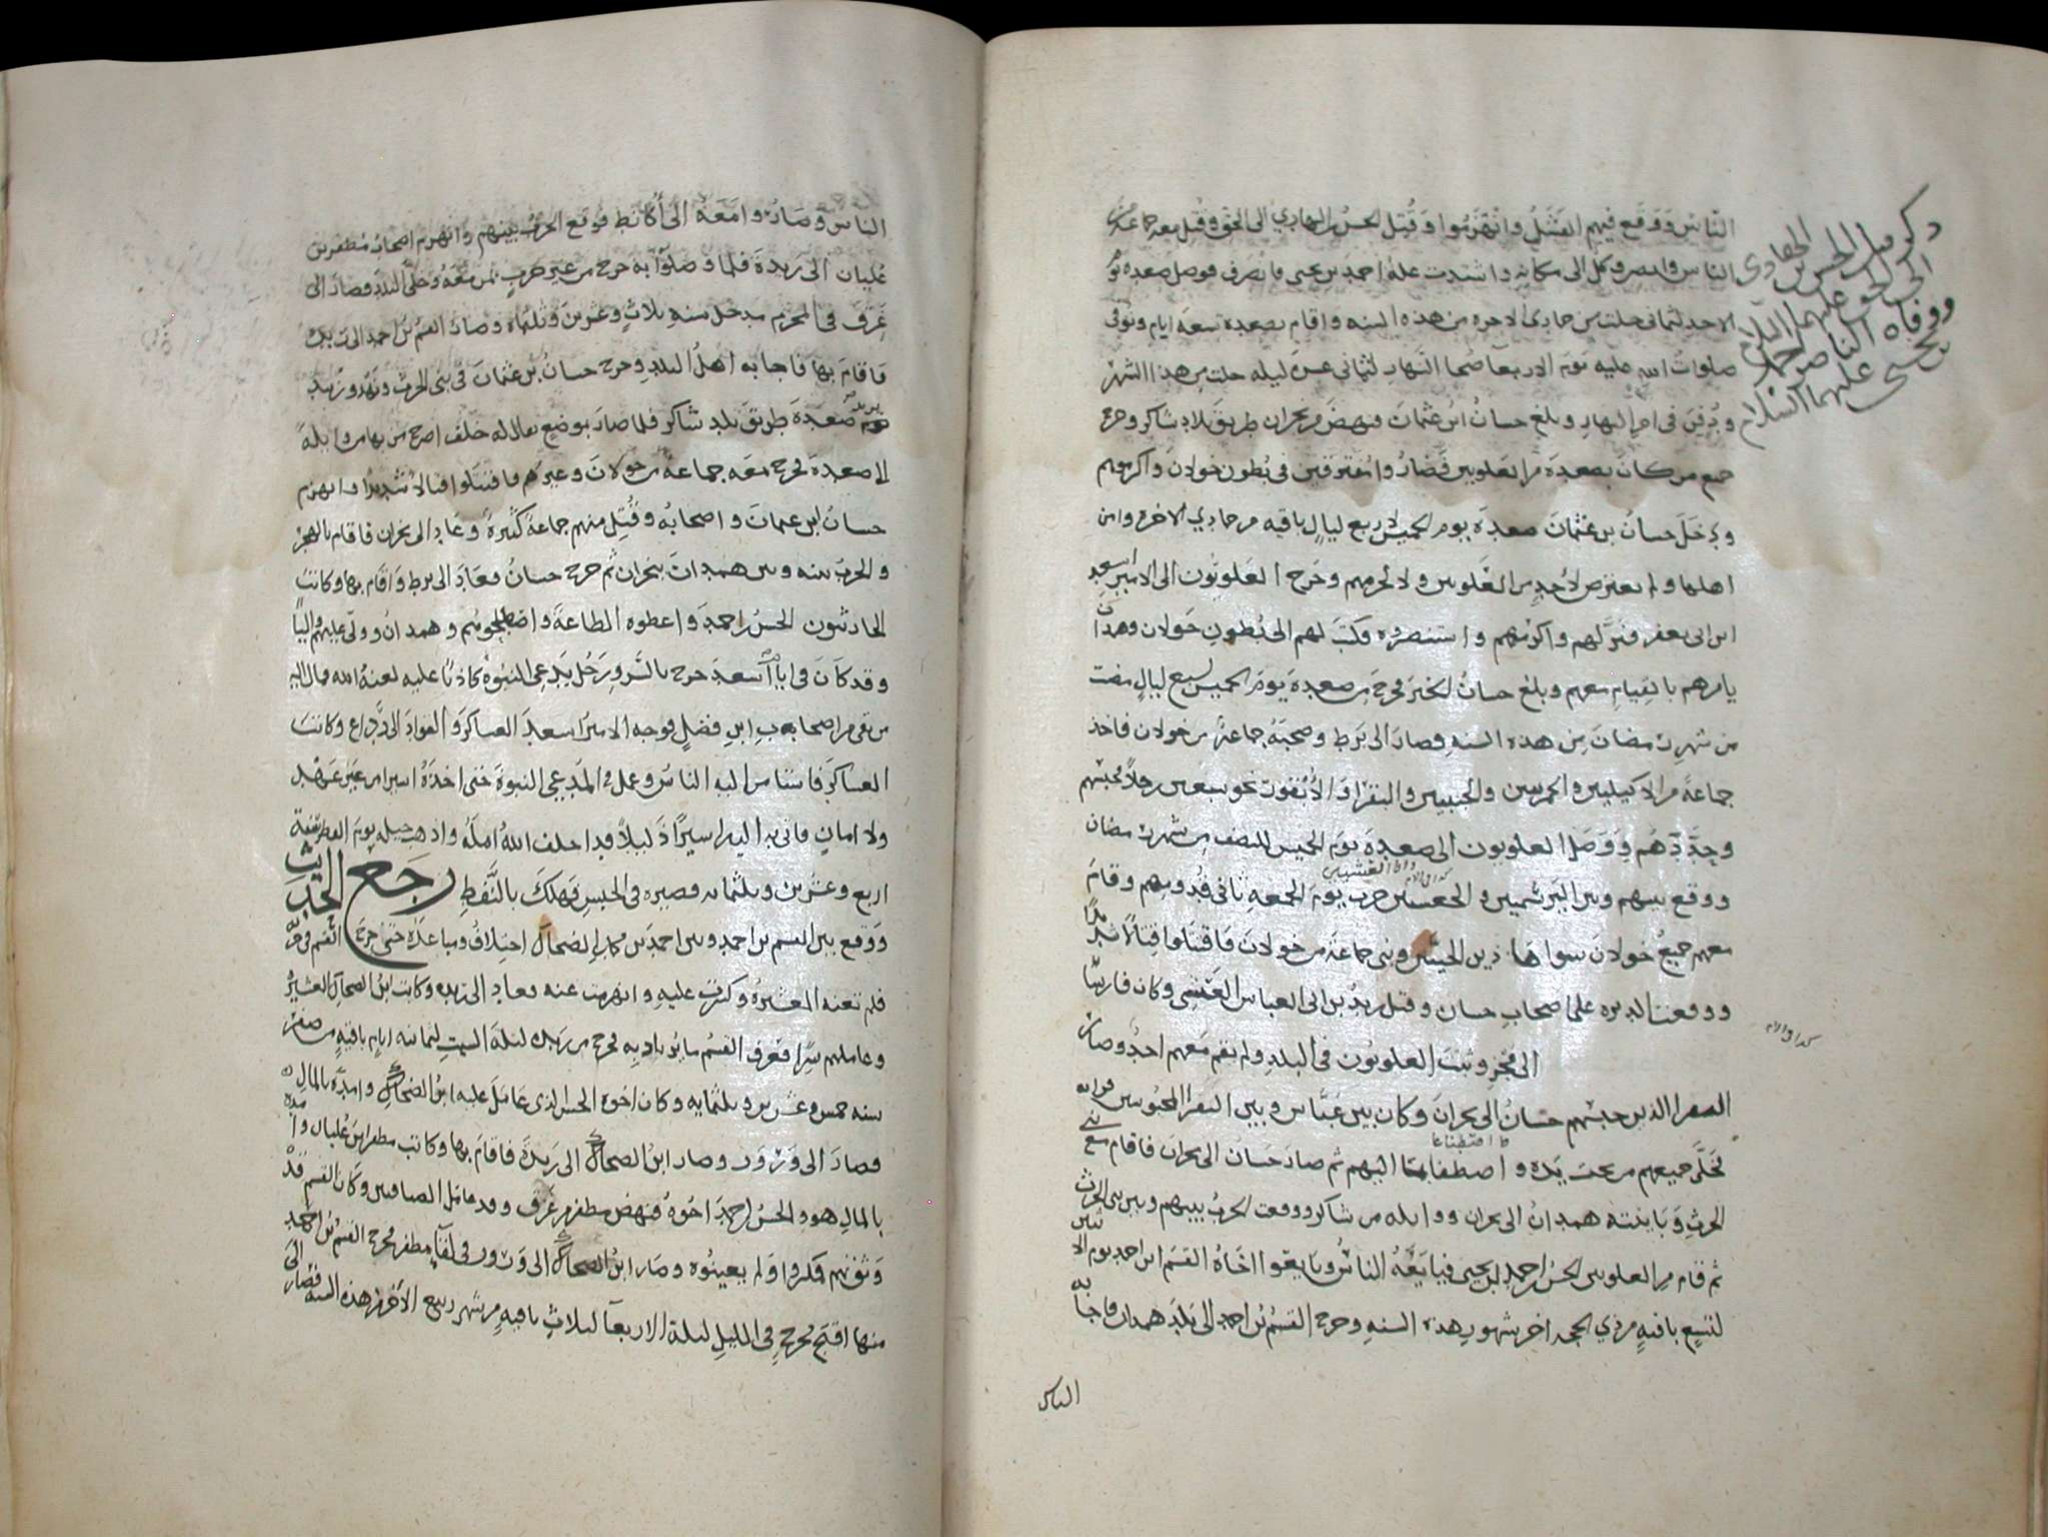 الناس ووقع فيهم الفشل وانهزموا وقتل الحسن بن الهادي الى الحق وقتل معه جماعة من
الناس وانصرف كل الى مكانه واشتدت علة احمد بن يحيى فانصرف فوصل صعدة يوم
الاحد لثماني خلت من جمادى الاخره من هذه السنه واقام بصعده تسعة ايام وتوفى
صلوات الله عليه يوم الاربعا ضحا النهار لثماني عشرة ليله خلت من هذا الشهر
ودفن في اخر النهار وبلغ حسان ابن عثمان فنهض من نجران طريق بلاد شاكر وخرج
جميع من كان بصعدة من العلويين فصاروا متفرقين في بطون خولان واكرموهم
ودخل حسان بن عثمان صعدة يوم الخميس لاربع ليال باقيه من جمادي الاخره وامن
اهلها ولم يعترض لاحد من العلويين ولا لحرمهم وخرج العلويون الى الامير اسعد
ابن ابي يعفر فنزلهم واكرمهم واستنصروه فكتب لهم الى بطون خولان وهمدان
يامرهم بالقيام معهم وبلغ حسان الخبر فخرج من صعدة يوم الخميس لسبع ليال مضت
من شهر رمضان من هذه السنه وصار الى برط وصحبه جماعة من خولان فاخذ
جماعة من الاكيليين والحمرسين والجنبيين والبقرا والانفون نحو سبعين رجلا فحبسهم
وحددهم ووصل العلويون الى صعدة يوم الخميس للنصف من شهر رمضان
ووقع بينهم وبين اليرسميين و حرب يوم الجمعه ثاني قدومهم وقام
معهم جميع خولان سوا هاذين الحيين وبني جماعة من خولان فاقتتلوا قتالا شديدا
ووقعت الدبره على اصحاب حسان وقتل يزيد بن ابي العباس العنسي وكان فارسا
الى وثبت العلويون في البلد ولم يقم معهم احد وصار
النفر الذين حبسهم حسان الى نجران وكان بين عباس وبين النفر المحبوسين قرابه
فخلى جميعهم من تحت يده و اليهم ثم صار حسان الى نجران فاقام مع بني
الحرث وباينته همدان الى نجران ووايله من شاكر ووقعت الحرب بينهم وبين بني الحرث
ثم قام من العلويين الحسن بن احمد بن يحيى فبايعه الناس وبايعوا اخاه القسم ابن احمد يوم الاثنين
لتسع باقيه من ذي الحجه اخر شهور هذه السنه وخرج القسم بن احمد الى بلد همدان فاجابه
الناس
ذكر مقتل الحسن بن الهادي
الى الحق عليهما السلام
ووفاه الناصر احمد
بن يحيى عليهما السلام
كذا في الام
كذا في الام
الناس وصاروا معه الى اكانط فوقع الحرب بينهم وانهزم اصحاب مظفر بن
عليان الى ريدة فلما وصلوا به خرج من غير حرب بمن معه وخلى البلد فصار الى
غرق في المحرم مدخل سنه ثلاث وعشرين وثلثمائه وصار القسم بن احمد الى ريدة
فاقام بها فاجابه اهل البلد وخرج حسان بن عثمان في بني الحرث ونهد وزبيد
يريد صعدة طريق بلد شاكر فلما صار بموضع يقال له خلف اصرخ من بها من وايله
الى صعدة فخرج معه جماعة من خولان وغيرهم فاقتتلوا قتالا شديدا وانهزم
حسان ابن عثمان واصحابه وقتل منهم جماعة كثيرة وعاد الى نجران فاقام بالهجر
والحرب بينه وبين همدان بنجران ثم خرج حسان فعاد الى برط واقام بها وكاتب
الحارثيون الحسن بن احمد واعطوه الطاعة واصطلحوا هم وهمدان وولى عليهم واليا
وقد كان في ايام اسعد خرج بالسرو رجل يدعي النبوة كاذبا عليه لعنة الله فمال اليه
من بقي من اصحابه ابن فضل فوجه الامير اسعد العساكر والقواد الى وكانت
العساكر فاستامن اليه الناس وعمل في المدعي النبوة حتى اخذه اسيرا من غير عهد
ولا امان فاتى به اليه اسيرا ذليلا قد اخلف الله امله واذهب حيله يوم الفطر سنة
اربع وعشرين وثلثمائه فصيره في الحبس فهلك بالنفط رجع الحديث
ووقع بين القسم بن احمد وبين احمد بن محمد بن الضحاك اختلاف ومباعدة حتى حرب القسم في
فلم تعنه العشيرة وكثرت عليه وانهزمت عنه فعاد الى ريده وكاتب ابن الضحاك العشيرة
وعاملهم سرا فعرف القسم ما يراد به فخرج من ريدة ليلة السبت لثمانيه ايام باقيه من صفر
سنه خمس وعشرين وثلثمايه وكان اخوه الحسن الذي عامل عليه ابن الضحاك وامده بالمال
فصار الى ورور وصار ابن الضحاك الى ريدة فاقام بها وكاتب مظفر ابن عليان وامده
بالمال هو والحسن بن احمد اخوه فنهض مظفر من غرق وقد عامل الصافيين وكان القسم قد
وثق بهم فمكروا ولم يعينوه وصار ابن الضحاك الى ورور في لقا مظفر فخرج القسم بن احمد
منها اقبح مخرج في الليل ليلة الاربعا لثلاث باقيه من شهر ربيع الاخر من هذه السنه فصار الى